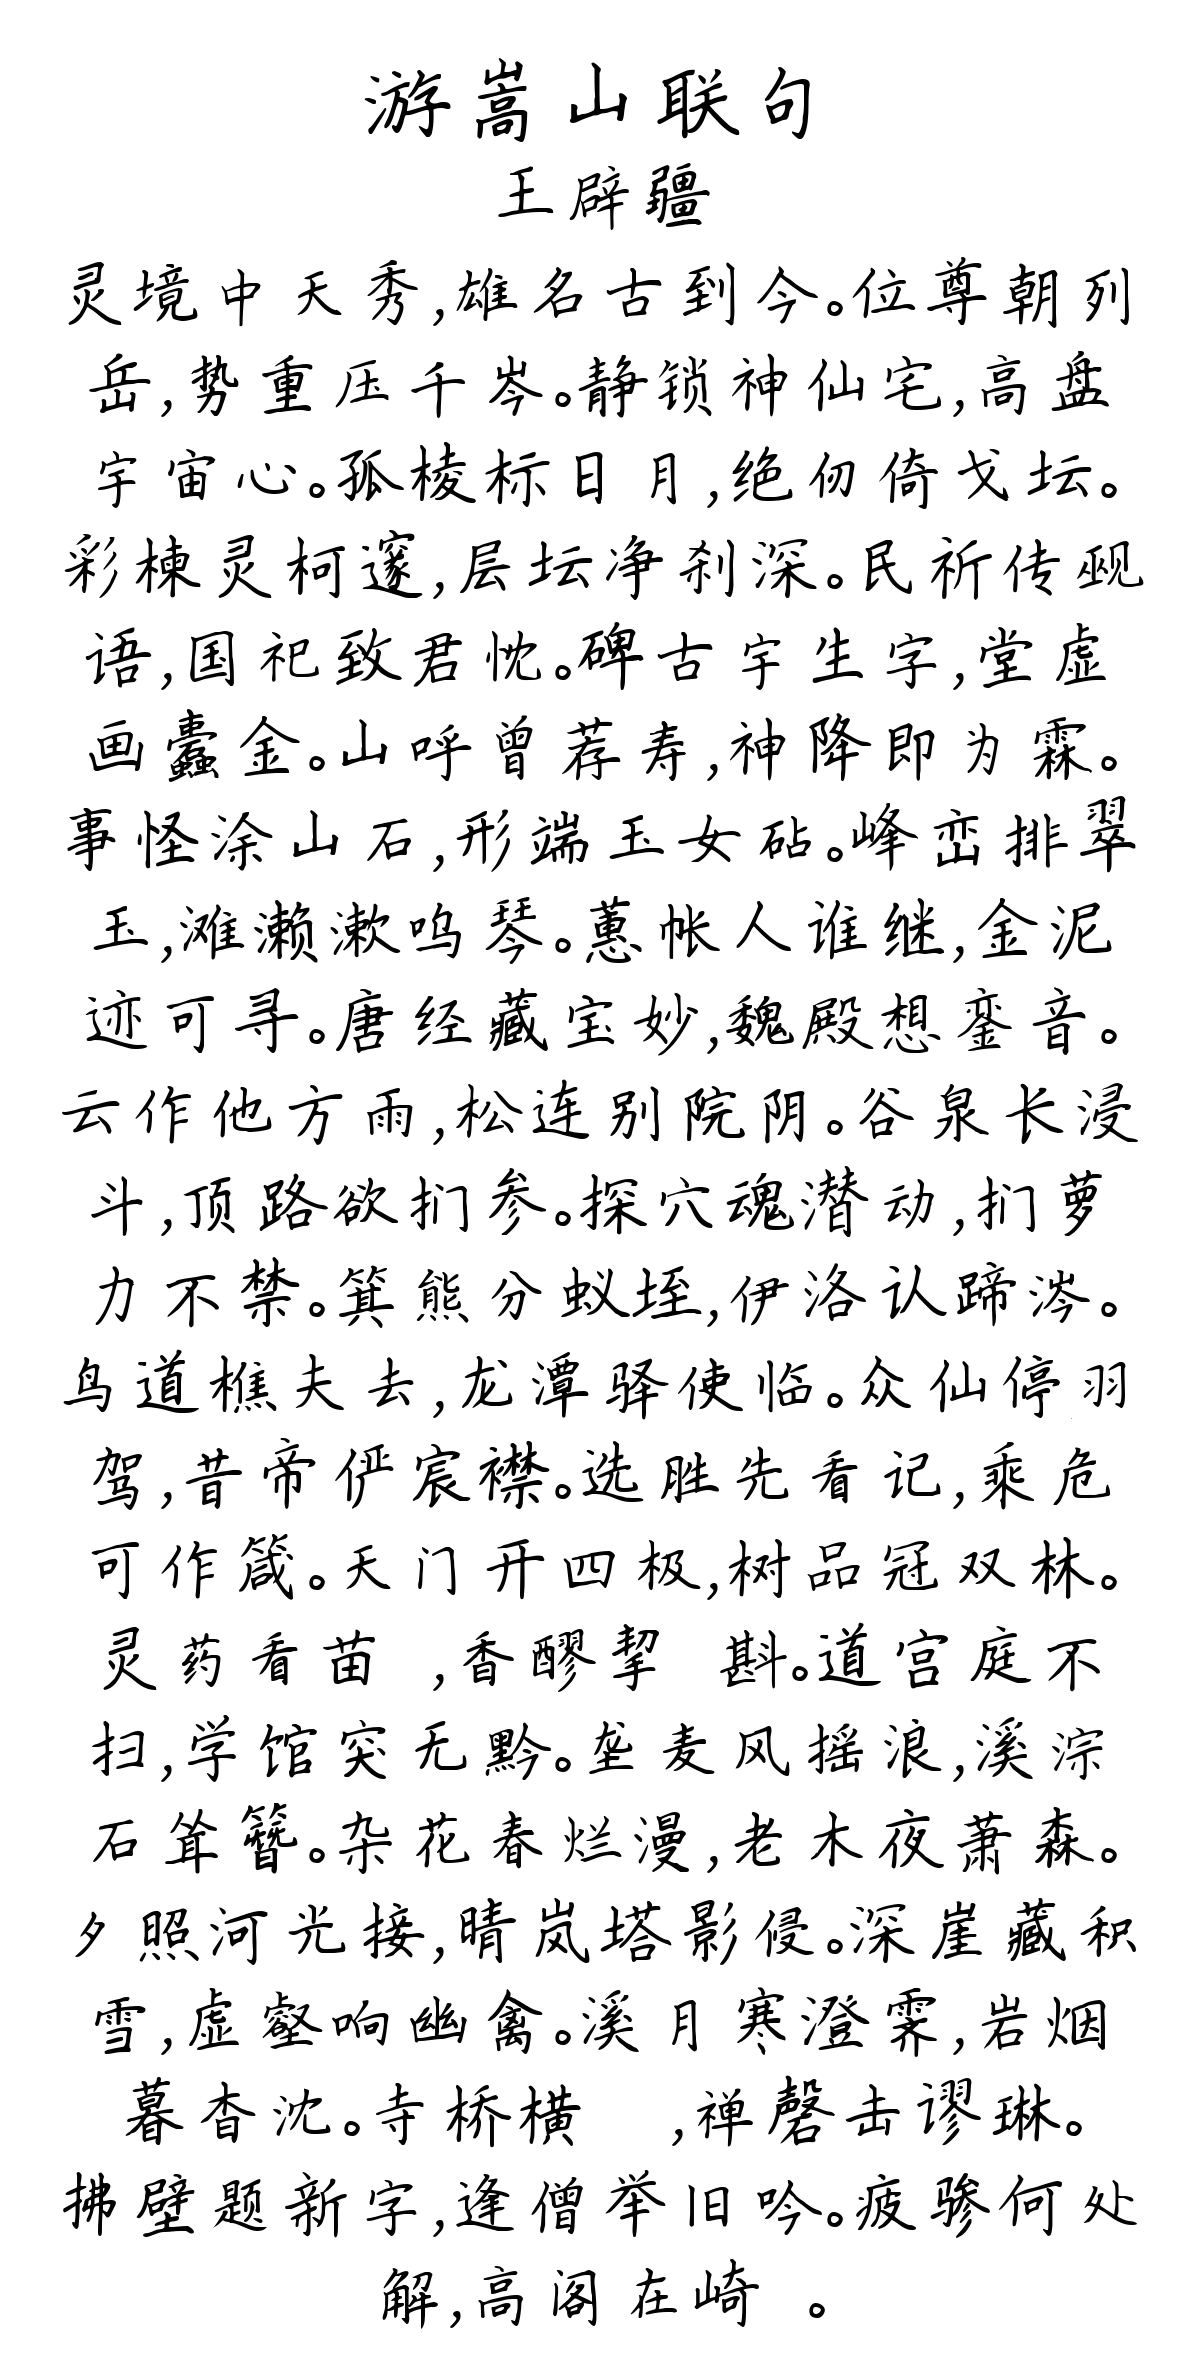 游嵩山联句
王辟疆
灵境中天秀,雄名古到今。位尊朝列
岳,势重压千岑。静锁神仙宅,高盘
宇宙心。孤棱标日月,绝仞倚戈坛。
彩楝灵柯邃,层坛净刹深。民祈传觋
语,国祀致君忱。碑古宇生字,堂虚
画蠹金。山呼曾荐寿,神降即为霖。
事怪涂山石,形端玉女砧。峰峦排翠
玉,滩濑漱鸣琴。蕙帐人谁继,金泥
迹可寻。唐经藏宝妙,魏殿想銮音。
云作他方雨,松连别院阴。谷泉长浸
斗,顶路欲扪参。探穴魂潜动,扪萝
力不禁。箕熊分蚁垤,伊洛认蹄涔。
鸟道樵夫去,龙潭驿使临。众仙停羽
驾,昔帝俨宸襟。选胜先看记,乘危
可作箴。天门开四极,树品冠双林。
灵药看苗 ,香醪挈 斟。道宫庭不
扫,学馆突无黔。垄麦风摇浪,溪淙
石耸簪。杂花春烂漫,老木夜萧森。
夕照河光接,晴岚塔影侵。深崖藏积
雪,虚壑响幽禽。溪月寒澄霁,岩烟
暮杳沈。寺桥横 ,禅磬击谬琳。
拂壁题新字,逢僧举旧吟。疲骖何处
解,高阁在崎 。